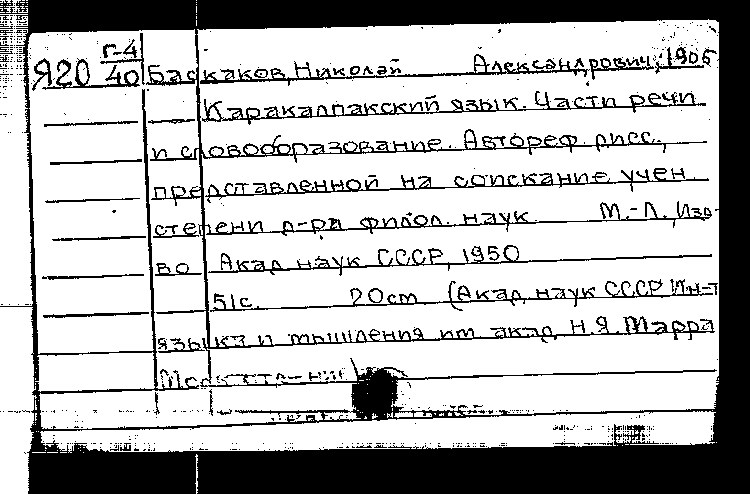 Г-4
Я20 40 Баскаков, Николай Александрович, 1905
Каракалпакский язык. Части речи
и словообразование. Автореф. дисс.,
представленной на соискание учен.
степени д-ра филол. наук М.-Л., Изд-
во Акад. наук СССР, 1950
51с. 20cm (Акад. наук СССР Ин-т
языка и мышления им акад. Н.Я. Марра